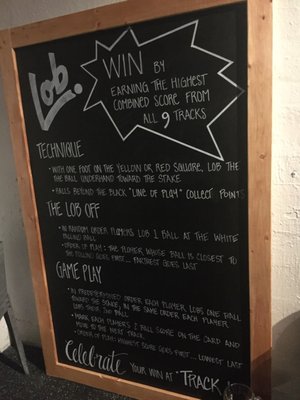 Lob.
WIN BY
EARNING THE HIGHEST
COMBINED SCORE FROM
ALL 9 TRACKS
TECHNIQUE
• WITH ONE FOOT ON THE YELLOW OR RED SQUARE, LOB THE
THE BALL UNDERHAND TOWARD THE STAKE
• BALLS BEYOND THE BLACK "LINE OF PLAY" COLLECT POINTS
THE LOB OFF
• IN RANDOM ORDER PLAYERS LOB 1 BALL AT THE WHITE
BALL
• ORDER OF PLAY: THE PLAYER WHOSE BALL IS CLOSEST TO
THE GOES FIRST... FARTHEST GOES LAST
GAME PLAY
• IN PREDETERMINED ORDER EACH PLAYER LOBS ONE BALL
TOWARD THE STAKE, IN THE SAME ORDER EACH PLAYER
LOBS THEIR 2ND BALL
• MARK EACH PLAYERS 2 BALL SCORE ON THE CARD AND
MOVE TO THE NEXT TRACK
• ORDER OF PLAY: HIGHEST SCORE GOES FIRST... LOWEST LAST
Celebrate YOUR WIN AT "TRACK